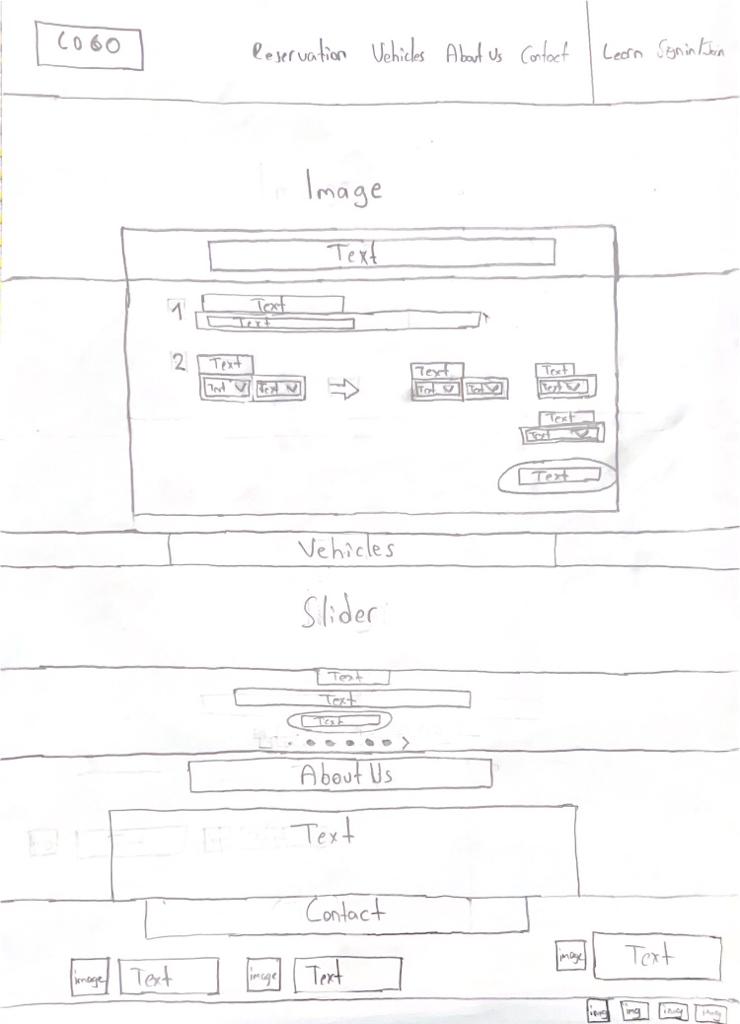 LOGO
Reservation Vehicles About Us Contact Learn Sign in/Join
Image
Text
1 Text
Text
2 Text Text Text
Text Text Text Text Text
Text
Text
Text
Vehicles
Slider
Text
Text
Text
About Us
Text
Contact
image Text image Text image Text
img img img img